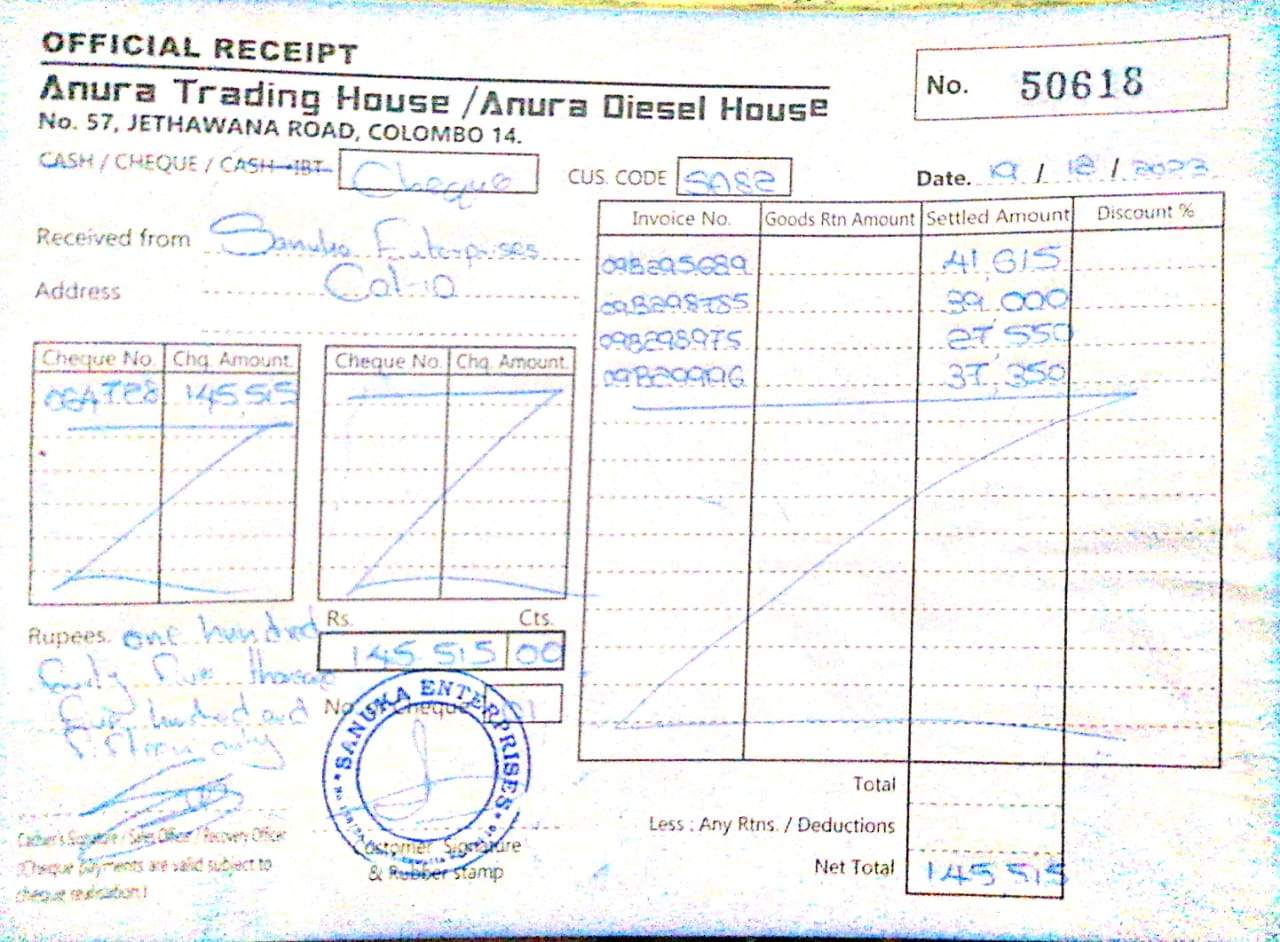 OFFICIAL RECEIPT
Anura Trading House / Anura Diesel House
No. 57, JETHAWANA ROAD, COLOMBO 14.
No. 50618
CASH / CHEQUE / CASH IBT Cheque
CUS. CODE SA82
Date. 19 / 12 / 2023
Received from Sanuka Enterprises
Address Col-10
Cheque No. Chq. Amount
145 515
Cheque No. Chq. Amount
Invoice No. Goods Rtn Amount Settled Amount Discount %
09B295689 41 615
09B298785 39,000
09B298975 27,550
37,350
Rupees. one hundred
fourty five thousand
five hundred and
only
Rs. Cts.
145 515 00
No. Cheque 01
SANUKA ENTERPRISES
Cashier's Signature / Sales Officer / Recovery Officer
(Cheque payments are valid subject to
cheque realisation.)
Customer Signature
& Rubber stamp
Total
Less : Any Rtns. / Deductions
Net Total 145 515